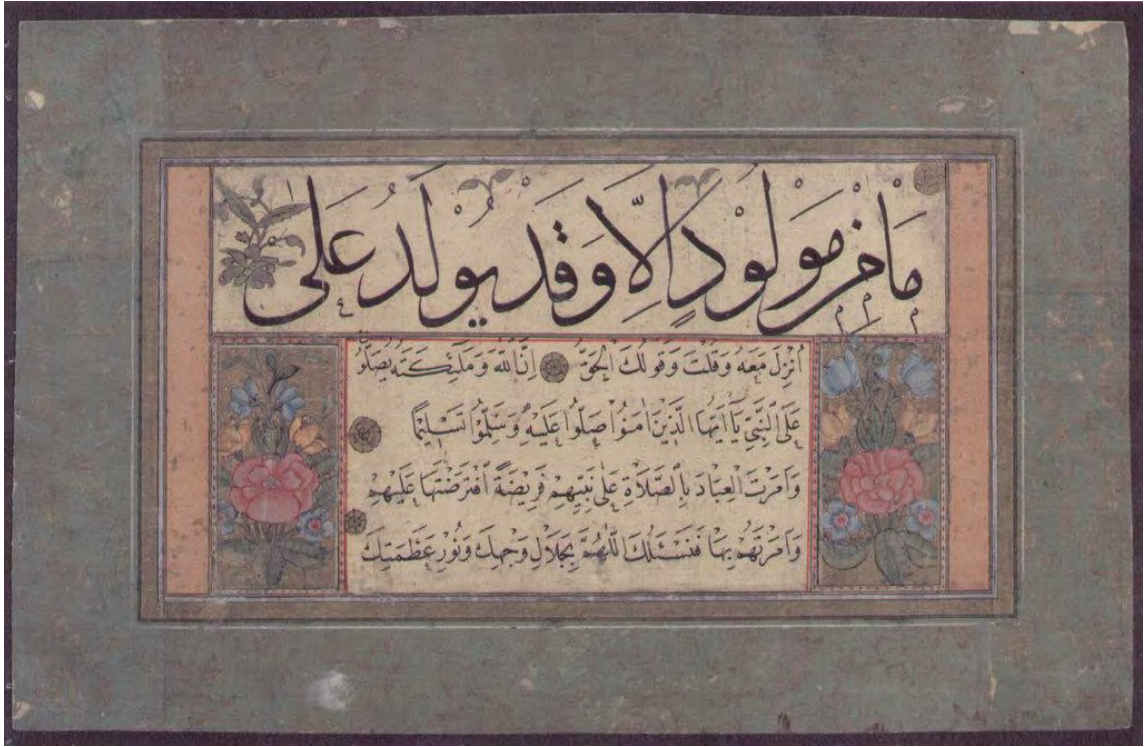 مَا مِنْ مَوْلُودٍ اِلَّا وَقَدْ يُولَدُ عَلَى
اُنْزِلَ مَعَهُ وَقُلْتَ وَقَوْلُكَ الْحَقُّ اِنَّ اللّٰهَ وَمَلٰئِكَتَهُ يُصَلُّونَ
عَلَى النَّبِيِّ يَآ اَيُّهَا الَّذِينَ اٰمَنُوا صَلُّوا عَلَيْهِ وَسَلِّمُوا تَسْلِيمًا
وَاَمَرْتَ الْعِبَادَ بِالصَّلَاةِ عَلٰى نَبِيِّهِمْ فَرِيضَةً اِفْتَرَضْتَهَا عَلَيْهِمْ
وَاَمَرْتَهُمْ بِهَا فَنَسْئَلُكَ اللّٰهُمَّ بِجَلَالِ وَجْهِكَ وَنُورِ عَظَمَتِكَ